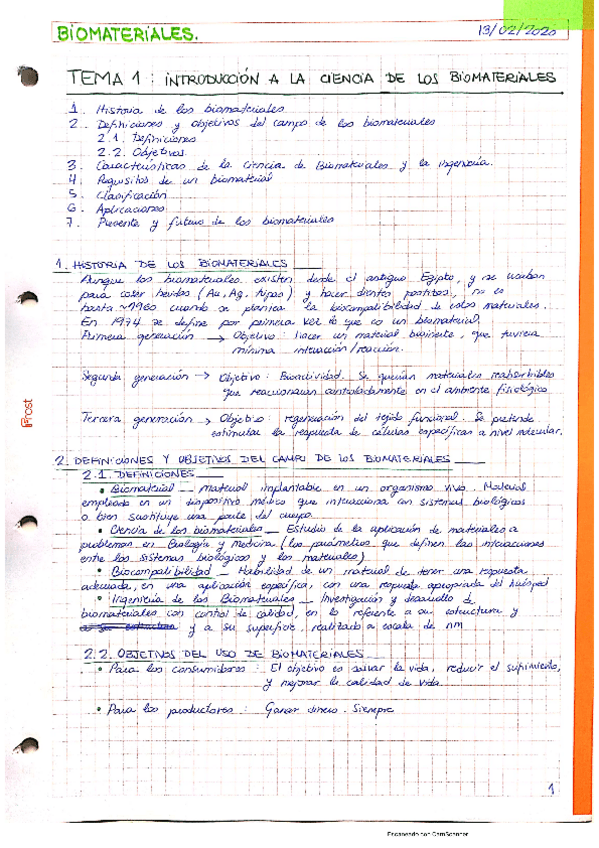 BIOMATERIALES.
13/02/2020
TEMA 1: INTRODUCCIÓN A LA CIENCIA DE LOS BIOMATERIALES
1. Historia de los biomateriales
2. Definiciones y objetivos del campo de los biomateriales
2.1. Definiciones
2.2. Objetivos.
3. Características de la ciencia de Biomateriales y la ingeniería.
4. Requisitos de un biomaterial
5. Clasificación
6. Aplicaciones
7. Presente y futuro de los biomateriales
1. HISTORIA DE LOS BIOMATERIALES
Aunque los biomateriales existen desde el antiguo Egipto, y se usaban
para coser heridas (Au, Ag, tripas) y hacer dientes postizos, no es
hasta ~1960 cuando se plantea la biocompatibilidad de estos materiales.
En 1974 se define por primera vez lo que es un biomaterial.
Primera generación → Objetivo: hacer un material bioinerte, que tuviera
mínima interacción/reacción.
Segunda generación → Objetivo: Bioactividad. Se querían materiales reabsorbibles
que reaccionaran controladamente en el ambiente fisiológico
Tercera generación → Objetivo: regeneración del tejido funcional. Se pretende
estimular la respuesta de células específicas a nivel molecular.
2. DEFINICIONES Y OBJETIVOS DEL CAMPO DE LOS BIOMATERIALES
2.1. DEFINICIONES
• Biomaterial _ material implantable en un organismo vivo. Material
empleado en un dispositivo médico que interacciona con sistemas biológicos
o bien sustituye una parte del cuerpo.
• Ciencia de los biomateriales _ Estudio de la aplicación de materiales a
problemas en Biología y medicina (los parámetros que definen las interacciones
entre los sistemas biológicos y los materiales)
• Biocompatibilidad _ Habilidad de un material de tener una respuesta
adecuada, en una aplicación específica, con una respuesta apropiada del huésped
• Ingeniería de los Biomateriales _ Investigación y desarrollo de
biomateriales con control de calidad, en lo referente a su estructura y
y a su superficie realizado a escala de nm
2.2. OBJETIVOS DEL USO DE BIOMATERIALES
• Para los consumidores: El objetivo es salvar la vida, reducir el sufrimiento,
y mejorar la calidad de vida.
• Para los productores: Ganar dinero. Siempre
1
Prost
Escaneado con CamScanner